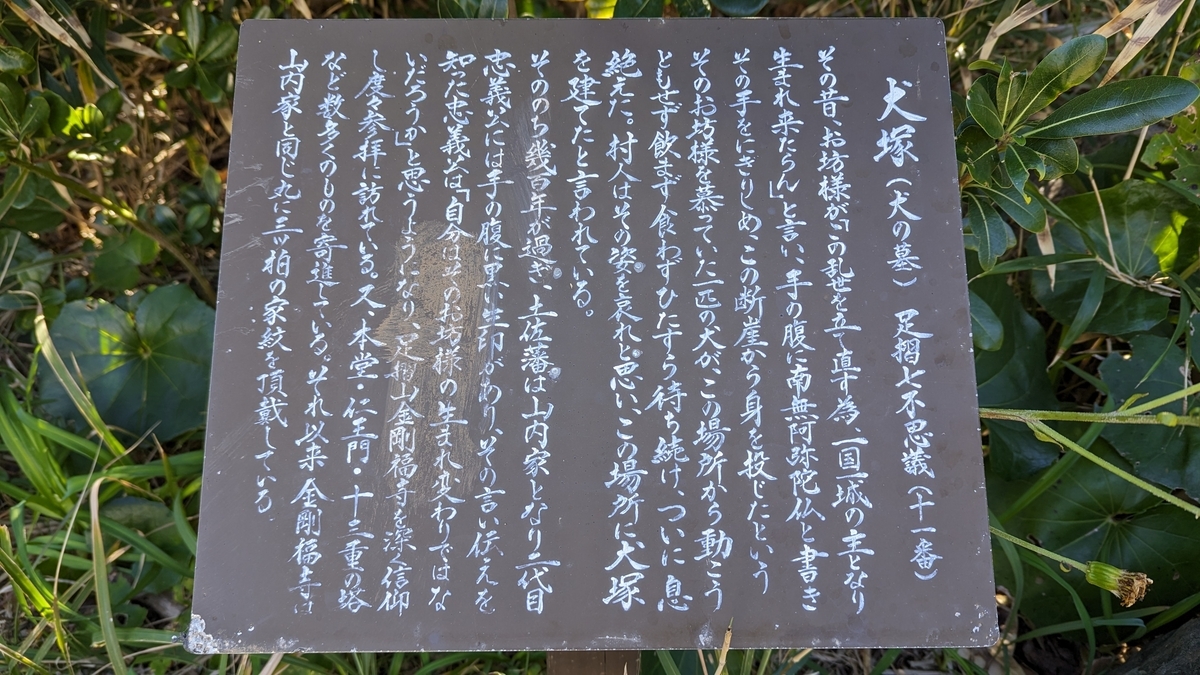 犬塚(犬の墓) 足摺七不思議(十一番)
その昔、お坊様が「この乱世を立て直す為、一国一城の主となり
生まれ来たらん」と言い、手の腹に南無阿弥陀仏と書き
その手をにぎりしめ、この断崖から身を投じたという
そのお坊様を慕っていた一匹の犬が、この場所から動こう
ともせず飲まず食わずひたすら待ち続け、ついに息
絶えた。村人はその姿を哀れと思い、この場所に犬塚
を建てたと言われている。
そののち幾百年が過ぎ、土佐藩は山内家となり二代目
忠義公には手の腹に黒い生印があり、その言い伝えを
知った忠義公は「自分はそのお坊様の生まれ変わりではな
いだろうか」と思うようになり、足摺山金剛福寺を深く信仰
し度々参拝に訪れている。又、本堂・仁王門・十三重の塔
など数多くのものを寄進している。それ以来金剛福寺は
山内家と同じ丸に三ツ柏の家紋を頂戴している